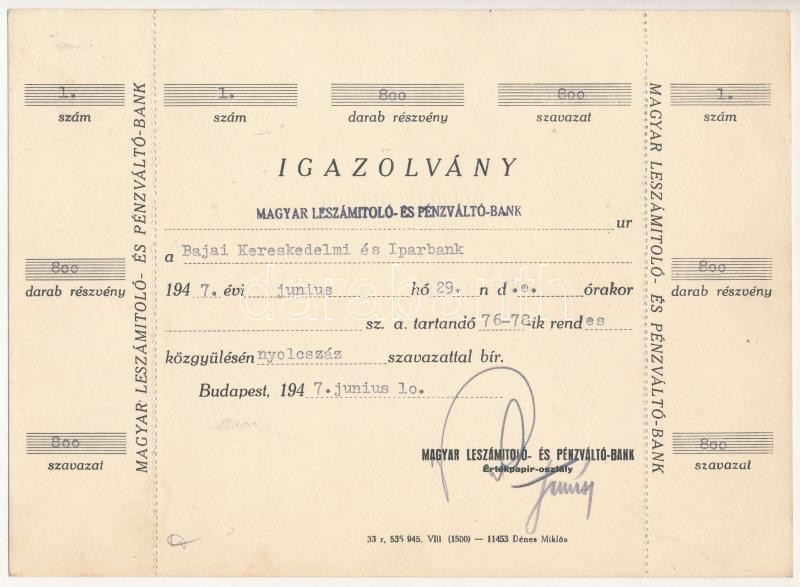 1.
szám
800
darab részvény
800
szavazat
MAGYAR LESZÁMITOLÓ- ÉS PÉNZVÁLTÓ-BANK
1.
szám
800
darab részvény
800
szavazat
IGAZOLVÁNY
MAGYAR LESZÁMITOLÓ- ÉS PÉNZVÁLTÓ-BANK
ur
a Bajai Kereskedelmi és Iparbank
194 7. évi junius hó 29. n d.e. órakor
sz. a. tartandó 76-78-ik rendes
közgyülésén nyolcszáz szavazattal bír.
Budapest, 194 7.junius lo.
MAGYAR LESZÁMITOLÓ- ÉS PÉNZVÁLTÓ-BANK
Értékpapir-osztály
33 r, 535 945. VIII (1500) — 11453 Dénes Miklós
MAGYAR LESZÁMITOLÓ- ÉS PÉNZVÁLTÓ-BANK
1.
szám
800
darab részvény
800
szavazat
darabanth